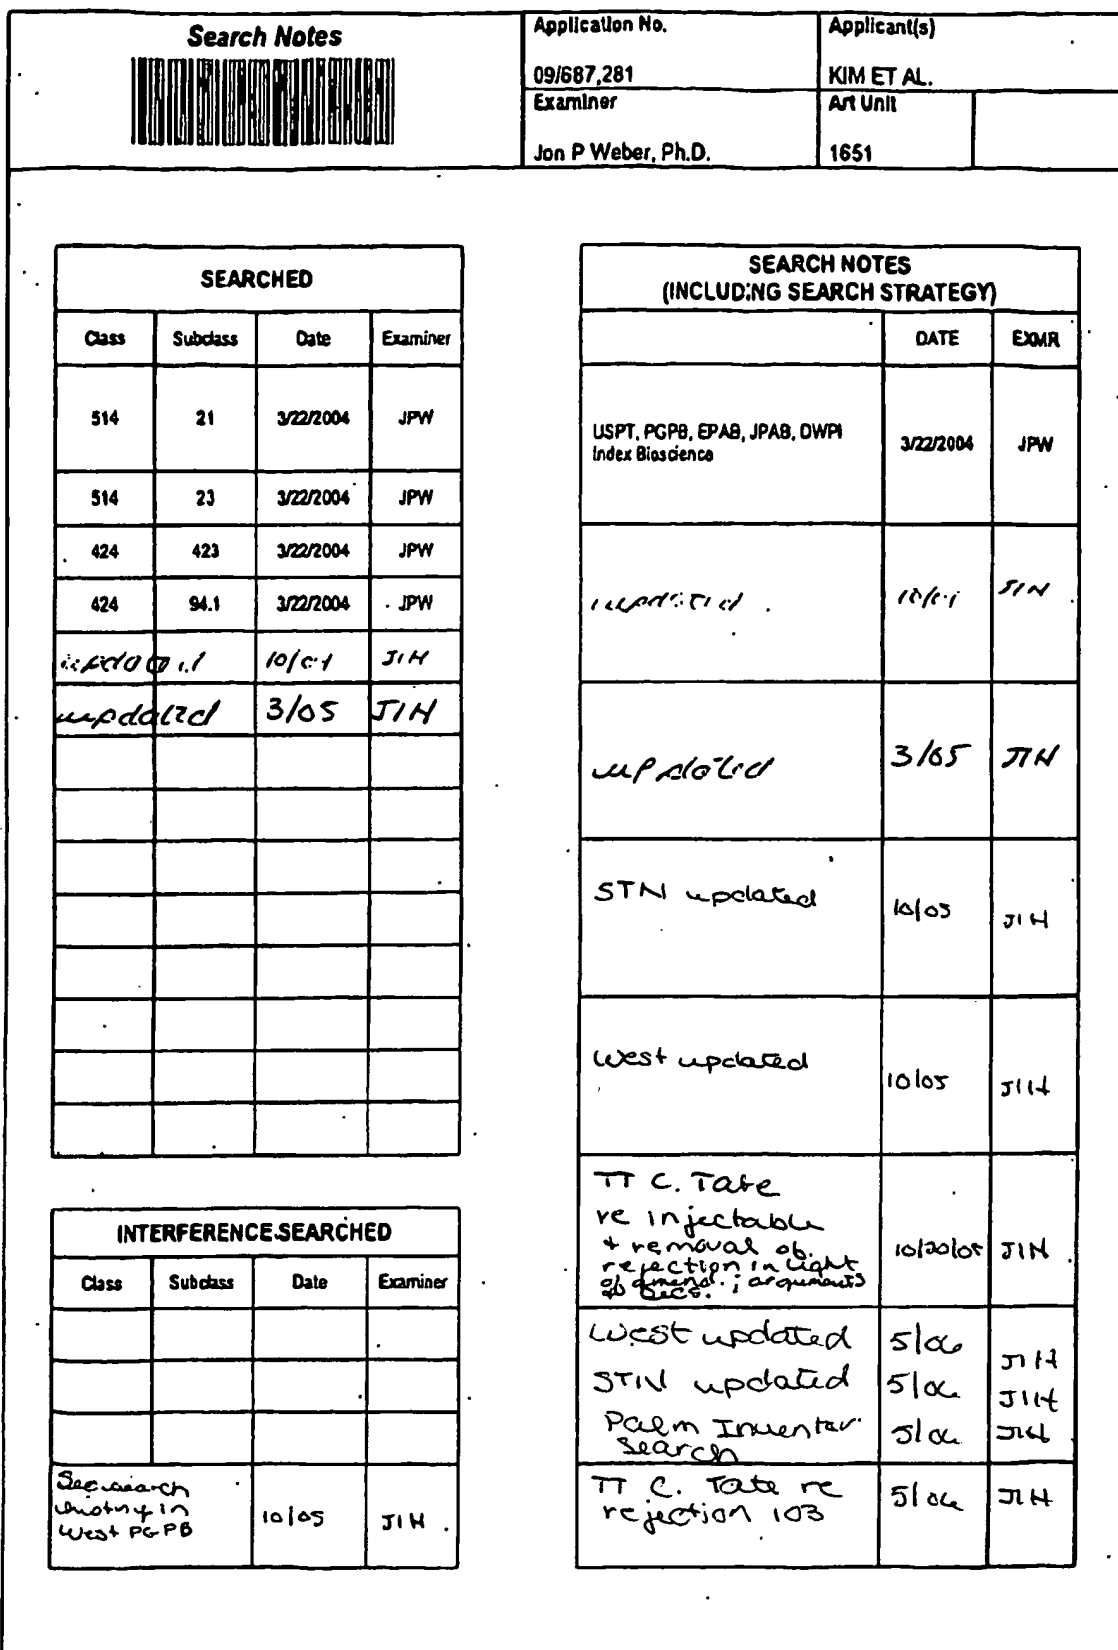 Search Notes
Application No.
09/687,281
Applicant(s)
KIM ET AL.
Examiner
Jon P Weber, Ph.D.
Art Unit
1651
SEARCHED
Class Subclass Date Examiner
514 21 3/22/2004 JPW
514 23 3/22/2004 JPW
424 423 3/22/2004 JPW
424 94.1 3/22/2004 JPW
updated 10/04 JIH
updated 3/05 JIH
INTERFERENCE SEARCHED
Class Subclass Date Examiner
See search
history in
West PGPB 10/05 JIH
SEARCH NOTES
(INCLUDING SEARCH STRATEGY)
DATE EXMR
USPT, PGPB, EPAB, JPAB, DWPI
Index Bioscience 3/22/2004 JPW
updated 10/04 JIH
updated 3/05 JIH
STN updated 10/05 JIH
West updated 10/05 JIH
TT C. Tate
re injectable
+ removal ob.
rejection in light
of amend. ; arguments
of Decs. 10/20/05 JIH
West updated 5/06 JIH
STN updated 5/06 JIH
Palm Inventor
Search 5/06 JIH
TT C. Tate re
rejection 103 5/06 JIH